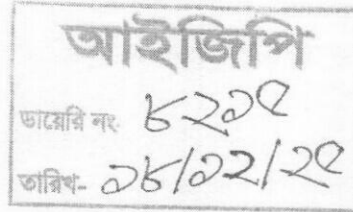 আইজিপি
ডায়েরি নং- ৮২১৫
তারিখ- ১৮/১২/২৫